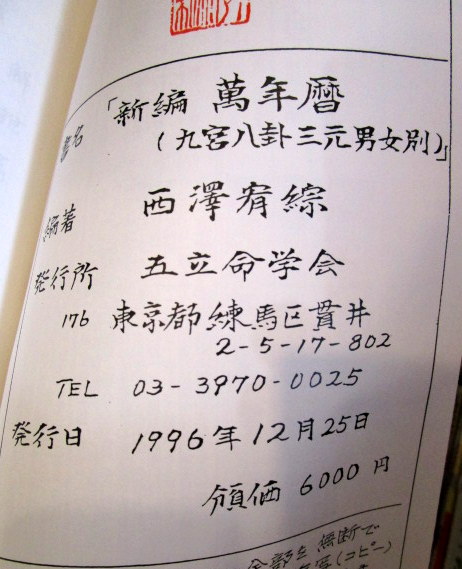 書名 「新編 萬年暦
(九宮八卦三元男女別)」
編著 西澤宥綜
発行所 五立命学会
176 東京都練馬区貫井
2-5-17-802
TEL 03-3970-0025
発行日 1996年12月25日
領価 6000円
無断で
(コピー)